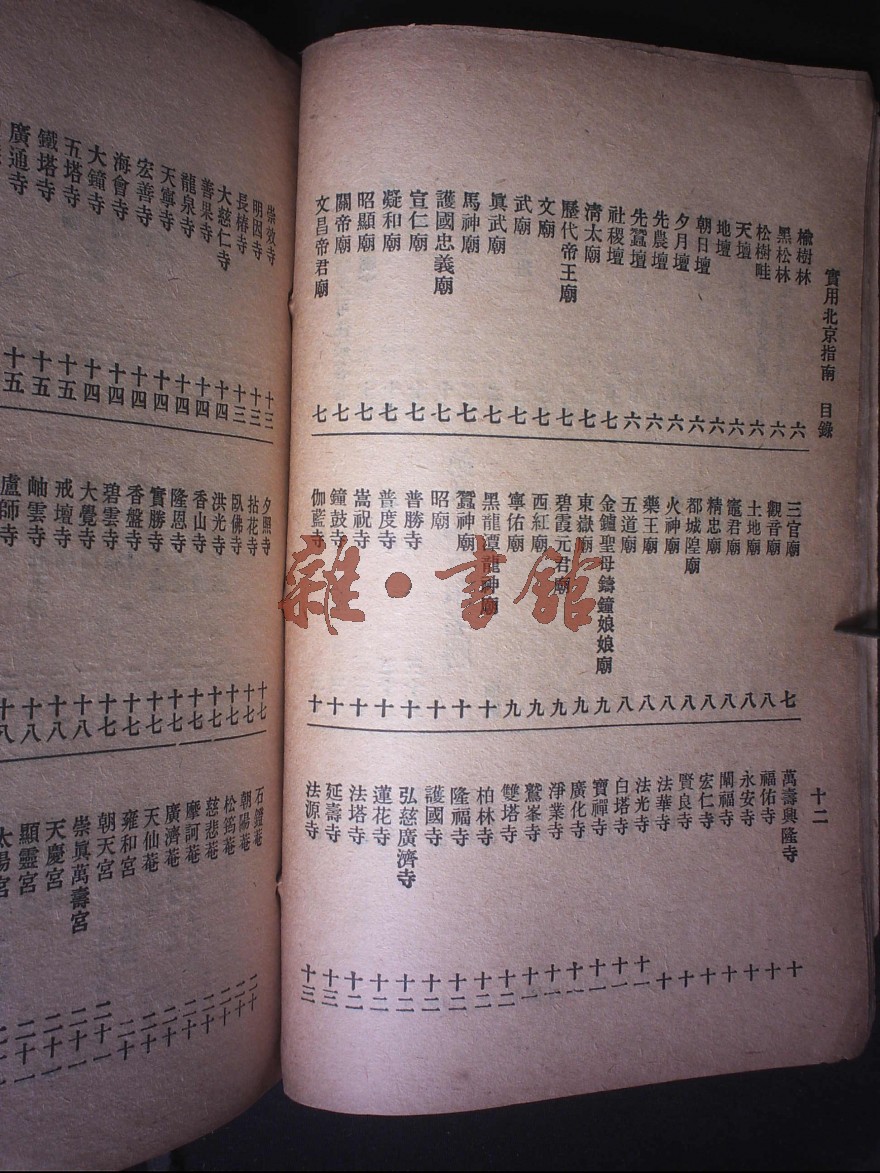 實用北京指南 目錄
十二
楡樹林 六
黑松林 六
松樹畦 六
天壇 六
地壇 六
朝日壇 六
夕月壇 六
先農壇 六
先蠶壇 六
社稷壇 七
清太廟 七
歷代帝王廟 七
文廟 七
武廟 七
眞武廟 七
馬神廟 七
護國忠義廟 七
宣仁廟 七
凝和廟 七
昭顯廟 七
關帝廟 七
文昌帝君廟 七
三官廟 七
觀音廟 八
土地廟 八
竈君廟 八
精忠廟 八
都城隍廟 八
火神廟 八
藥王廟 八
五道廟 八
金鑪聖母鑄鐘娘娘廟 九
東嶽廟 九
碧霞元君廟 九
西紅廟 九
寧佑廟 九
黑龍潭龍神廟 十
蠶神廟 十
昭廟 十
普勝寺 十
普度寺 十
嵩祝寺 十
鐘鼓寺 十
伽藍寺 十
萬壽興隆寺 十
福佑寺 十
永安寺 十
闡福寺 十
宏仁寺 十
賢良寺 十
法華寺 十
法光寺 十一
白塔寺 十一
寶禪寺 十一
廣化寺 十一
淨業寺 十一
鷲峯寺 十一
雙塔寺 十二
柏林寺 十二
隆福寺 十二
護國寺 十二
弘慈廣濟寺 十二
蓮花寺 十二
法塔寺 十二
延壽寺 十三
法源寺 十三
崇效寺 十三
明因寺 十三
長椿寺 十三
大慈仁寺 十四
善果寺 十四
龍泉寺 十四
天寧寺 十四
宏善寺 十四
海會寺 十四
大鐘寺 十四
五塔寺 十五
鐵塔寺 十五
廣通寺 十五
夕照寺 十七
拈花寺 十七
臥佛寺 十七
洪光寺 十七
香山寺 十七
隆恩寺 十七
實勝寺 十七
香盤寺 十七
碧雲寺 十七
大覺寺 十八
戒壇寺 十八
岫雲寺 十八
盧師寺 十八
石鐙菴 二十
朝陽菴 二十
松筠菴 二十
慈悲菴 二十
摩訶菴 二十
廣濟菴 二十
天仙菴 二十
雍和宮 二十
朝天宮 二十一
崇眞萬壽宮 二十一
天慶宮 二十一
顯靈宮 二十一
太陽宮
雜·書館